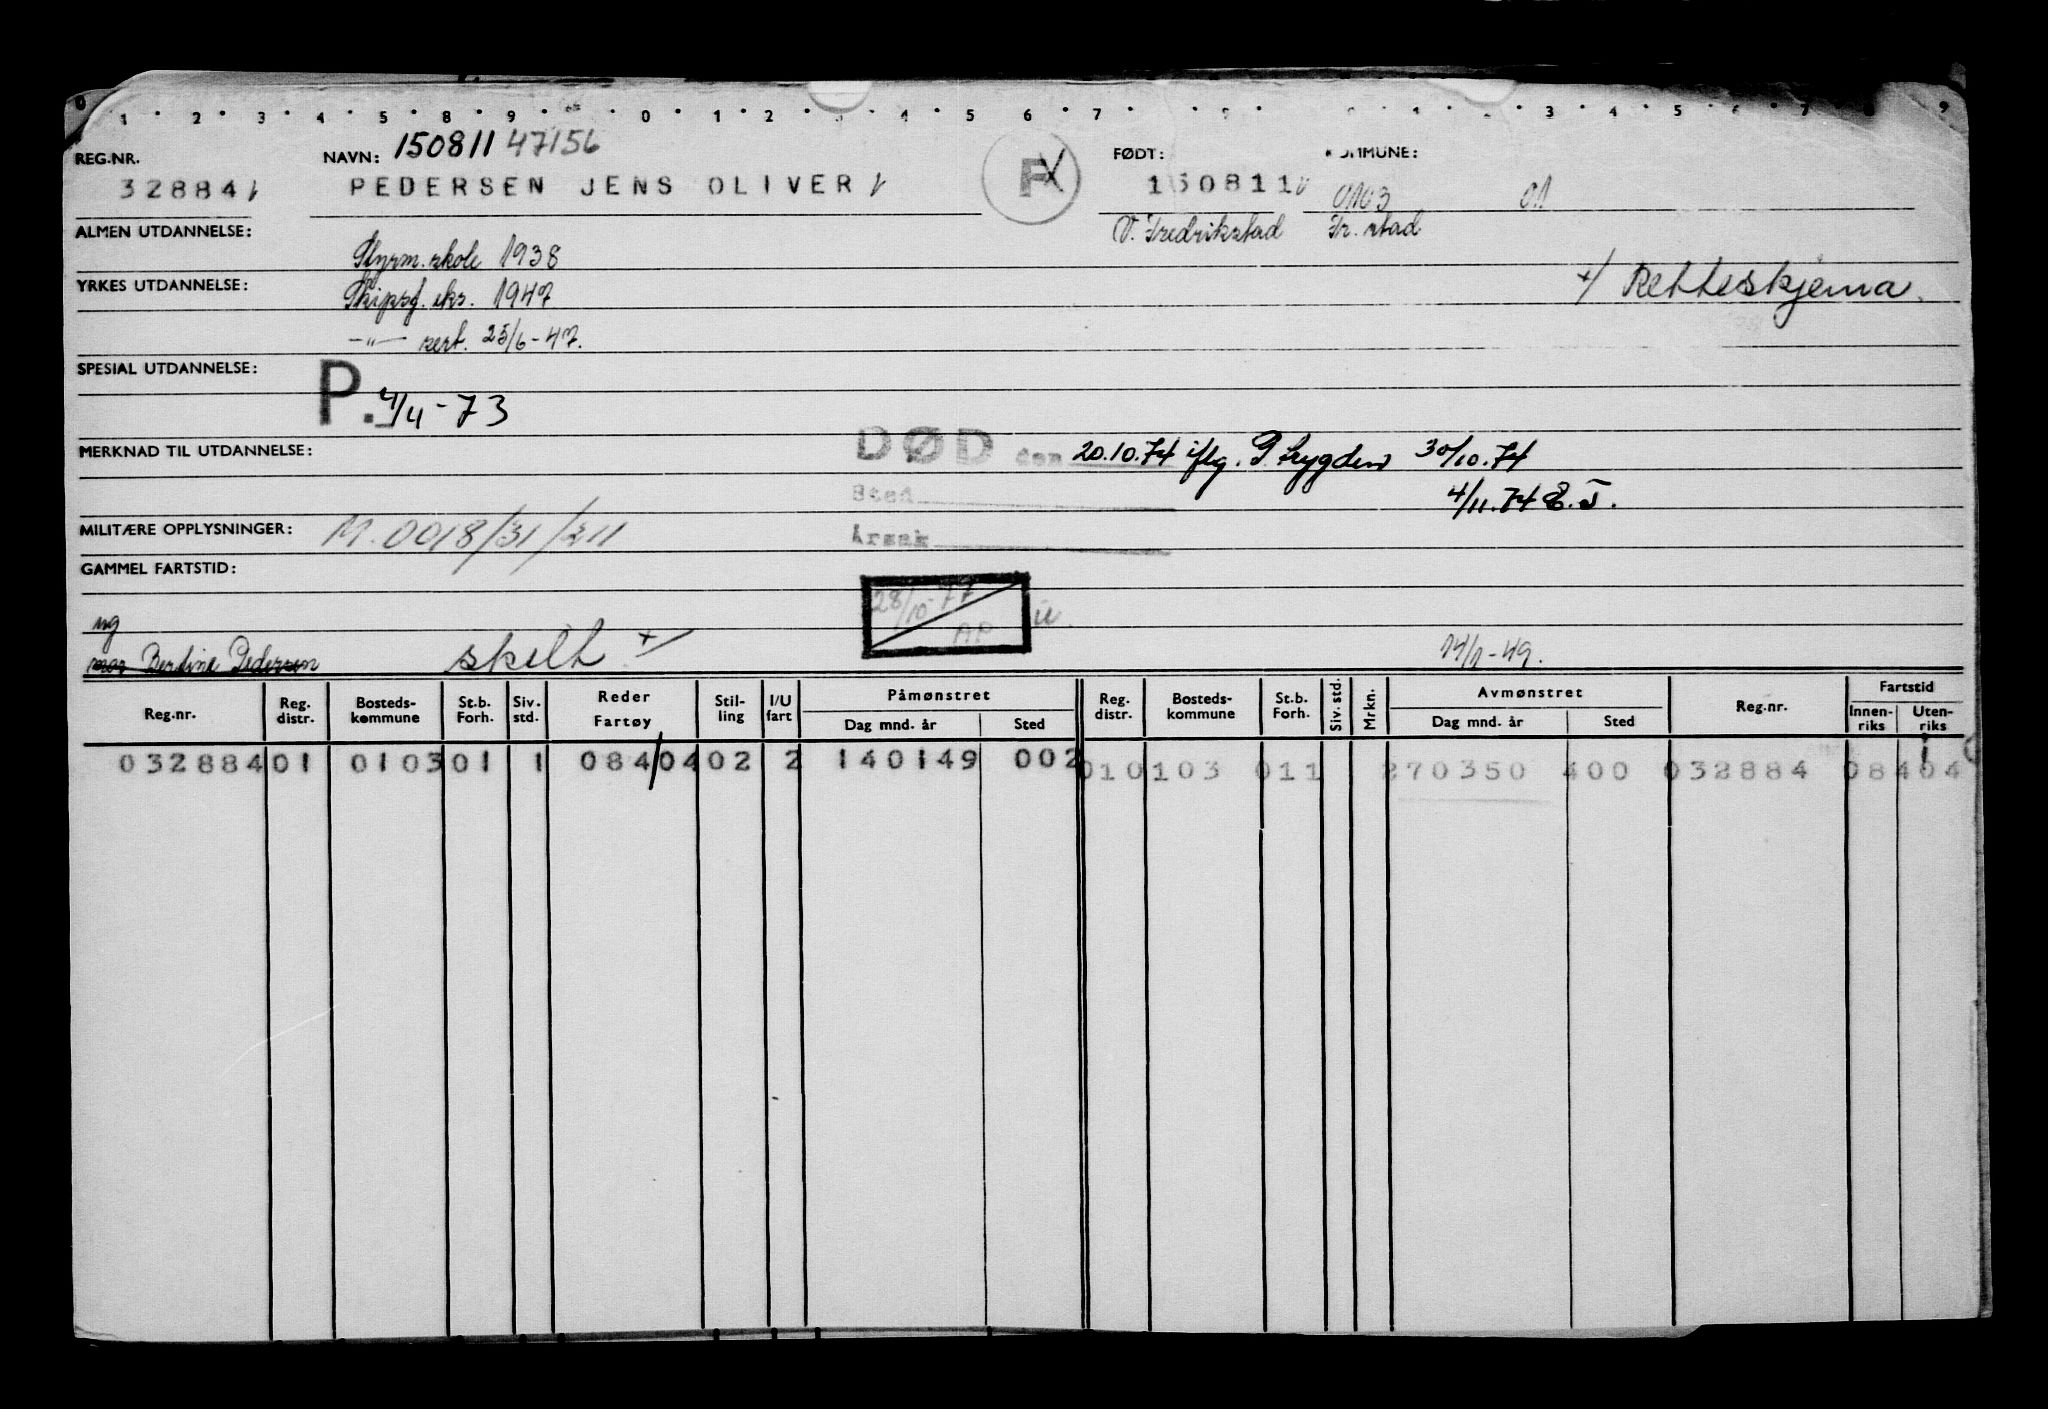 1 2 3 4 5 8 9 0 1 2 4 5 6 7 3 4 5 7 9
150811 47156
REG.NR. NAVN: FØDT: KOMMUNE:
32884 PEDERSEN JENS OLIVER F 150811 0103 01
V. Fredrikstad Fr. stad
ALMEN UTDANNELSE:
Styrm. skole 1938
YRKES UTDANNELSE: Skipsf. eks. 1947 +/ Retteskjema.
—"— sert. 25/6-47.
SPESIAL UTDANNELSE:
P. 4/4-73
MERKNAD TIL UTDANNELSE: DØD den 20.10.74 iflg. P. trygden 30/10.74
Sted 4/11.74 E.J.
MILITÆRE OPPLYSNINGER: M.0018/31/211 Årsak
GAMMEL FARTSTID:
28/10-77 AP u.
ug
mor Bertine Pedersen skilt +/ 14/1-49.
Reg.nr. Reg. distr. Bosteds-kommune St.b. Forh. Siv. std. Reder Fartøy Stil-ling I/U fart Påmønstret Dag mnd. år Sted Reg. distr. Bosteds-kommune St.b. Forh. Siv. std. Mrkn. Avmønstret Dag mnd. år Sted Reg.nr. Fartstid Innen-riks Uten-riks
032884 01 0103 01 1 084/04 02 2 140149 002 01 0103 01 1 270350 400 032884 08404